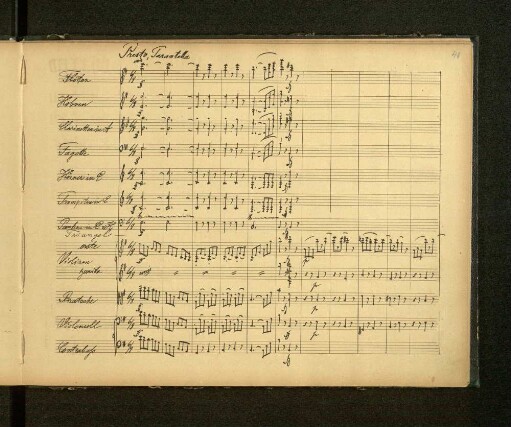 Presto, Tarantella
Flöten
Hoboen
Klarinetten in A
Fagotte
Hörner in E
Trompeten in E
Pauken in E. H.
Triangel
erste
Violinen
zweite
Bratsche
Violoncell
Contrabass